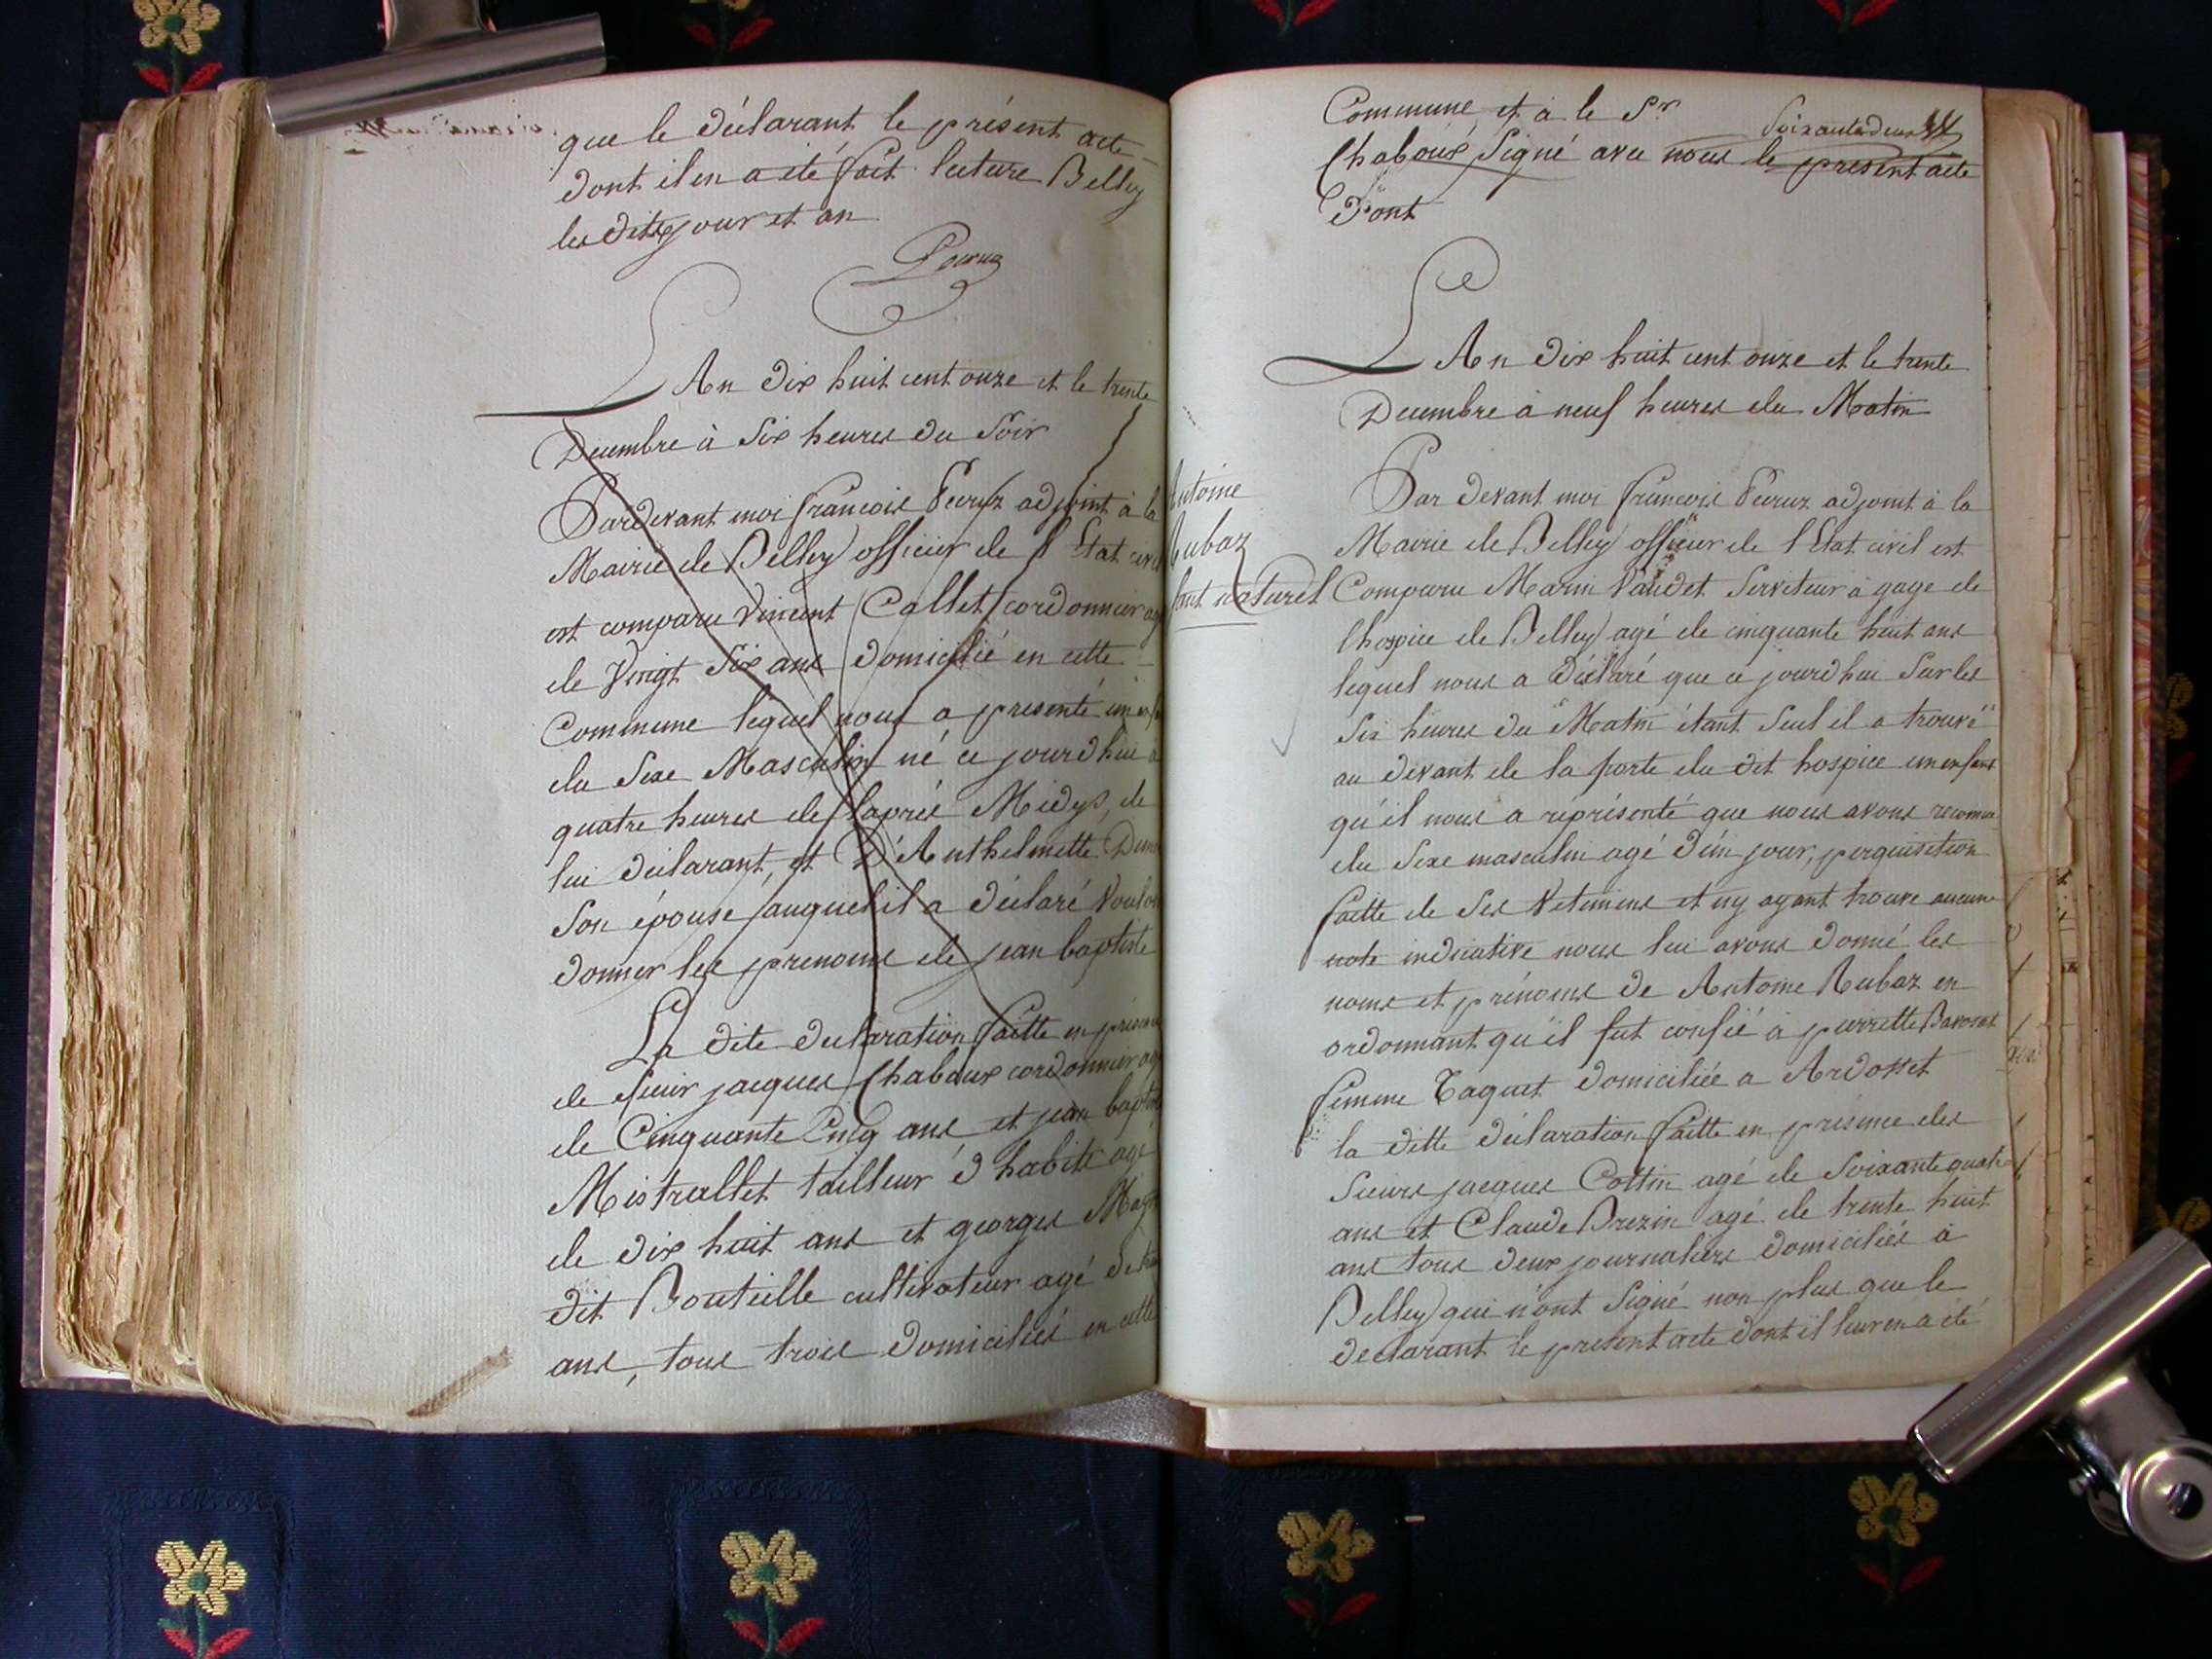 que le déclarant le présent acte
dont il en a été fait lecture Belley
les dits jour et an
Peeruz
L'An dix huit cent onze et le trente
Decembre à Six heures du Soir
Pardevant moi francois Peeruz adjoint à la
Mairie de Belley officier de l'Etat civil
est comparu Vincent Callet cordonnier ag
de Vingt Six ans domicilié en cette
Commune lequel nous a presenté un enf
du Sexe Masculin né ce jourd'hui a
quatre heures de l'après Midy, de
lui déclarant, et D'Anthelmette
Son épouse auquel il a déclaré Vouloi
donner les prenoms de jean baptiste
La dite declaration faitte en présen
de Sieur jacques Chaboux cordonnier ag
de Cinquante Cinq ans et jean baptis
Mistrallet tailleur d'habits agé
de dix huit ans et georges
dit Bouteille cultivateur agé de
ans, tous trois domiciliés en cette
Commune et à le Sr
Soixante deux
Chaboux Signé avec nous le present acte
Dont
L'An dix huit cent onze et le trente
Decembre à neuf heures du Matin
ntoine
Rubaz
fant naturel
Par devant moi francois Peeruz adjoint à la
Mairie de Belley officier de l'Etat civil est
Comparu Marin Vaudet Serviteur à gage de
l'hospice de Belley agé de cinquante huit ans
lequel nous a Déclaré que ce jourd'hui Sur les
Six heures du Matin étant Seul il a trouvé
au devant de la porte du dit hospice un enfant
qu'il nous a réprésenté que nous avons reconnu
du Sexe masculin agé d'un jour, perquisition
faitte de Ses Vetemens et n'y ayant trouve aucune
note indicative nous lui avons donné les
noms et prénoms de Antoine Rubaz en
ordonnant qu'il fut confié à pierrette
femme Taguet domiciliée a Ardosset
la ditte déclaration faitte en présence des
Sieurs jacques Cottin agé de Soixante quatre
ans et Claude Brezin agé de trente huit
ans tous deux journaliers domiciliés à
Belley qui n'ont Signé non plus que le
declarant le present acte dont il leur en a été